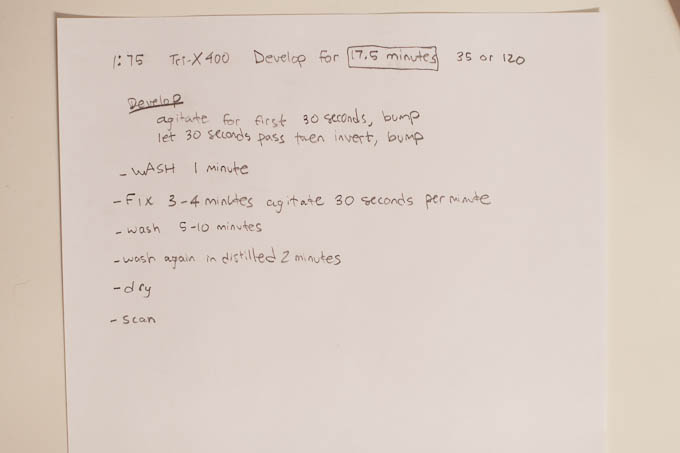 1:75 Tri-X 400 Develop for 17.5 minutes 35 or 120
Develop
agitate for first 30 seconds, bump
let 30 seconds pass then invert, bump
- WASH 1 minute
- FIX 3-4 minutes agitate 30 seconds per minute
- wash 5-10 minutes
- wash again in distilled 2 minutes
- dry
- scan